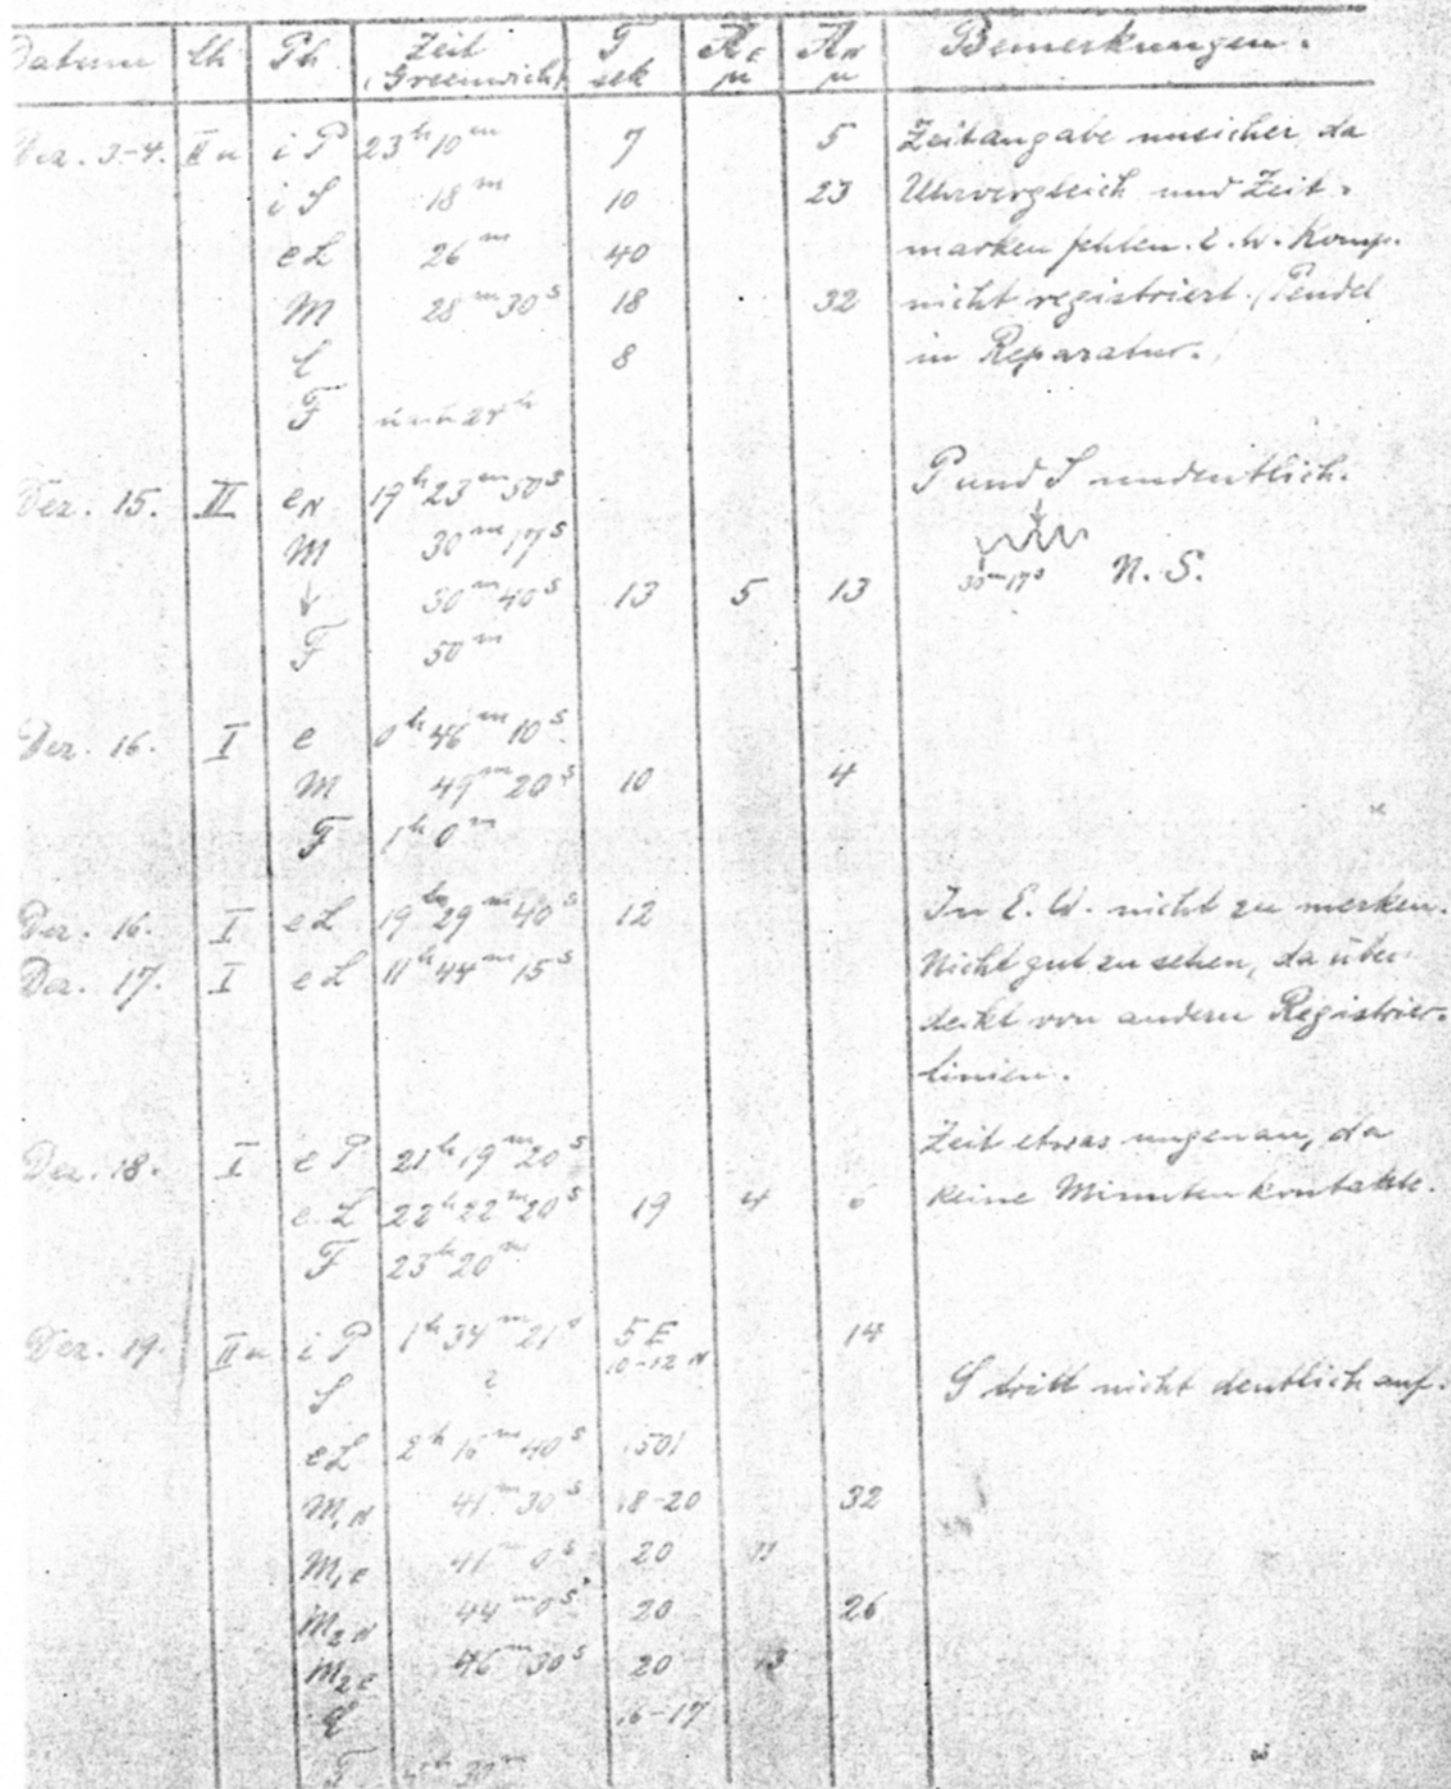 Datum Ch Ph Zeit (Greenwich) T sek A_E μ A_N μ Bemerkungen.
Dez. 3-4. II u i P 23h 10m 7 5 Zeitangabe unsicher, da
i S 18m 10 23 Uhrvergleich und Zeit-
e L 26m 40 marken fehlen. E. W. Komp.
M 28m 30s 18 32 nicht registriert. (Pendel
C 8 in Reparatur.)
F nach 24h
Dez. 15. II e_N 19h 23m 50s P und S undeutlich.
M 30m 17s
↓ 30m 40s 13 5 13 30m 17s N. S.
F 50m
Dez. 16. I e 0h 46m 10s
M 49m 20s 10 4
F 1h 0m
Dez. 16. I e L 19h 29m 40s 12 In E. W. nicht zu merken.
Dez. 17. I e L 11h 44m 15s Nicht gut zu sehen, da über-
deckt von andern Registrier-
linien.
Dez. 18. I e P 21h 19m 20s Zeit etwas ungenau, da
e L 22h 22m 20s 19 4 6 keine Minutenkontakte.
F 23h 20m
Dez. 19. II u i P 1h 34m 21s 5 E 14
10-12 N
S ? S tritt nicht deutlich auf.
e L 2h 16m 40s (50)
M_1 N 41m 30s 18-20 32
M_1 E 41m 0s 20 11
M_2 N 44m 0s 20 26
M_2 E 46m 30s 20 13
C 16-17
F